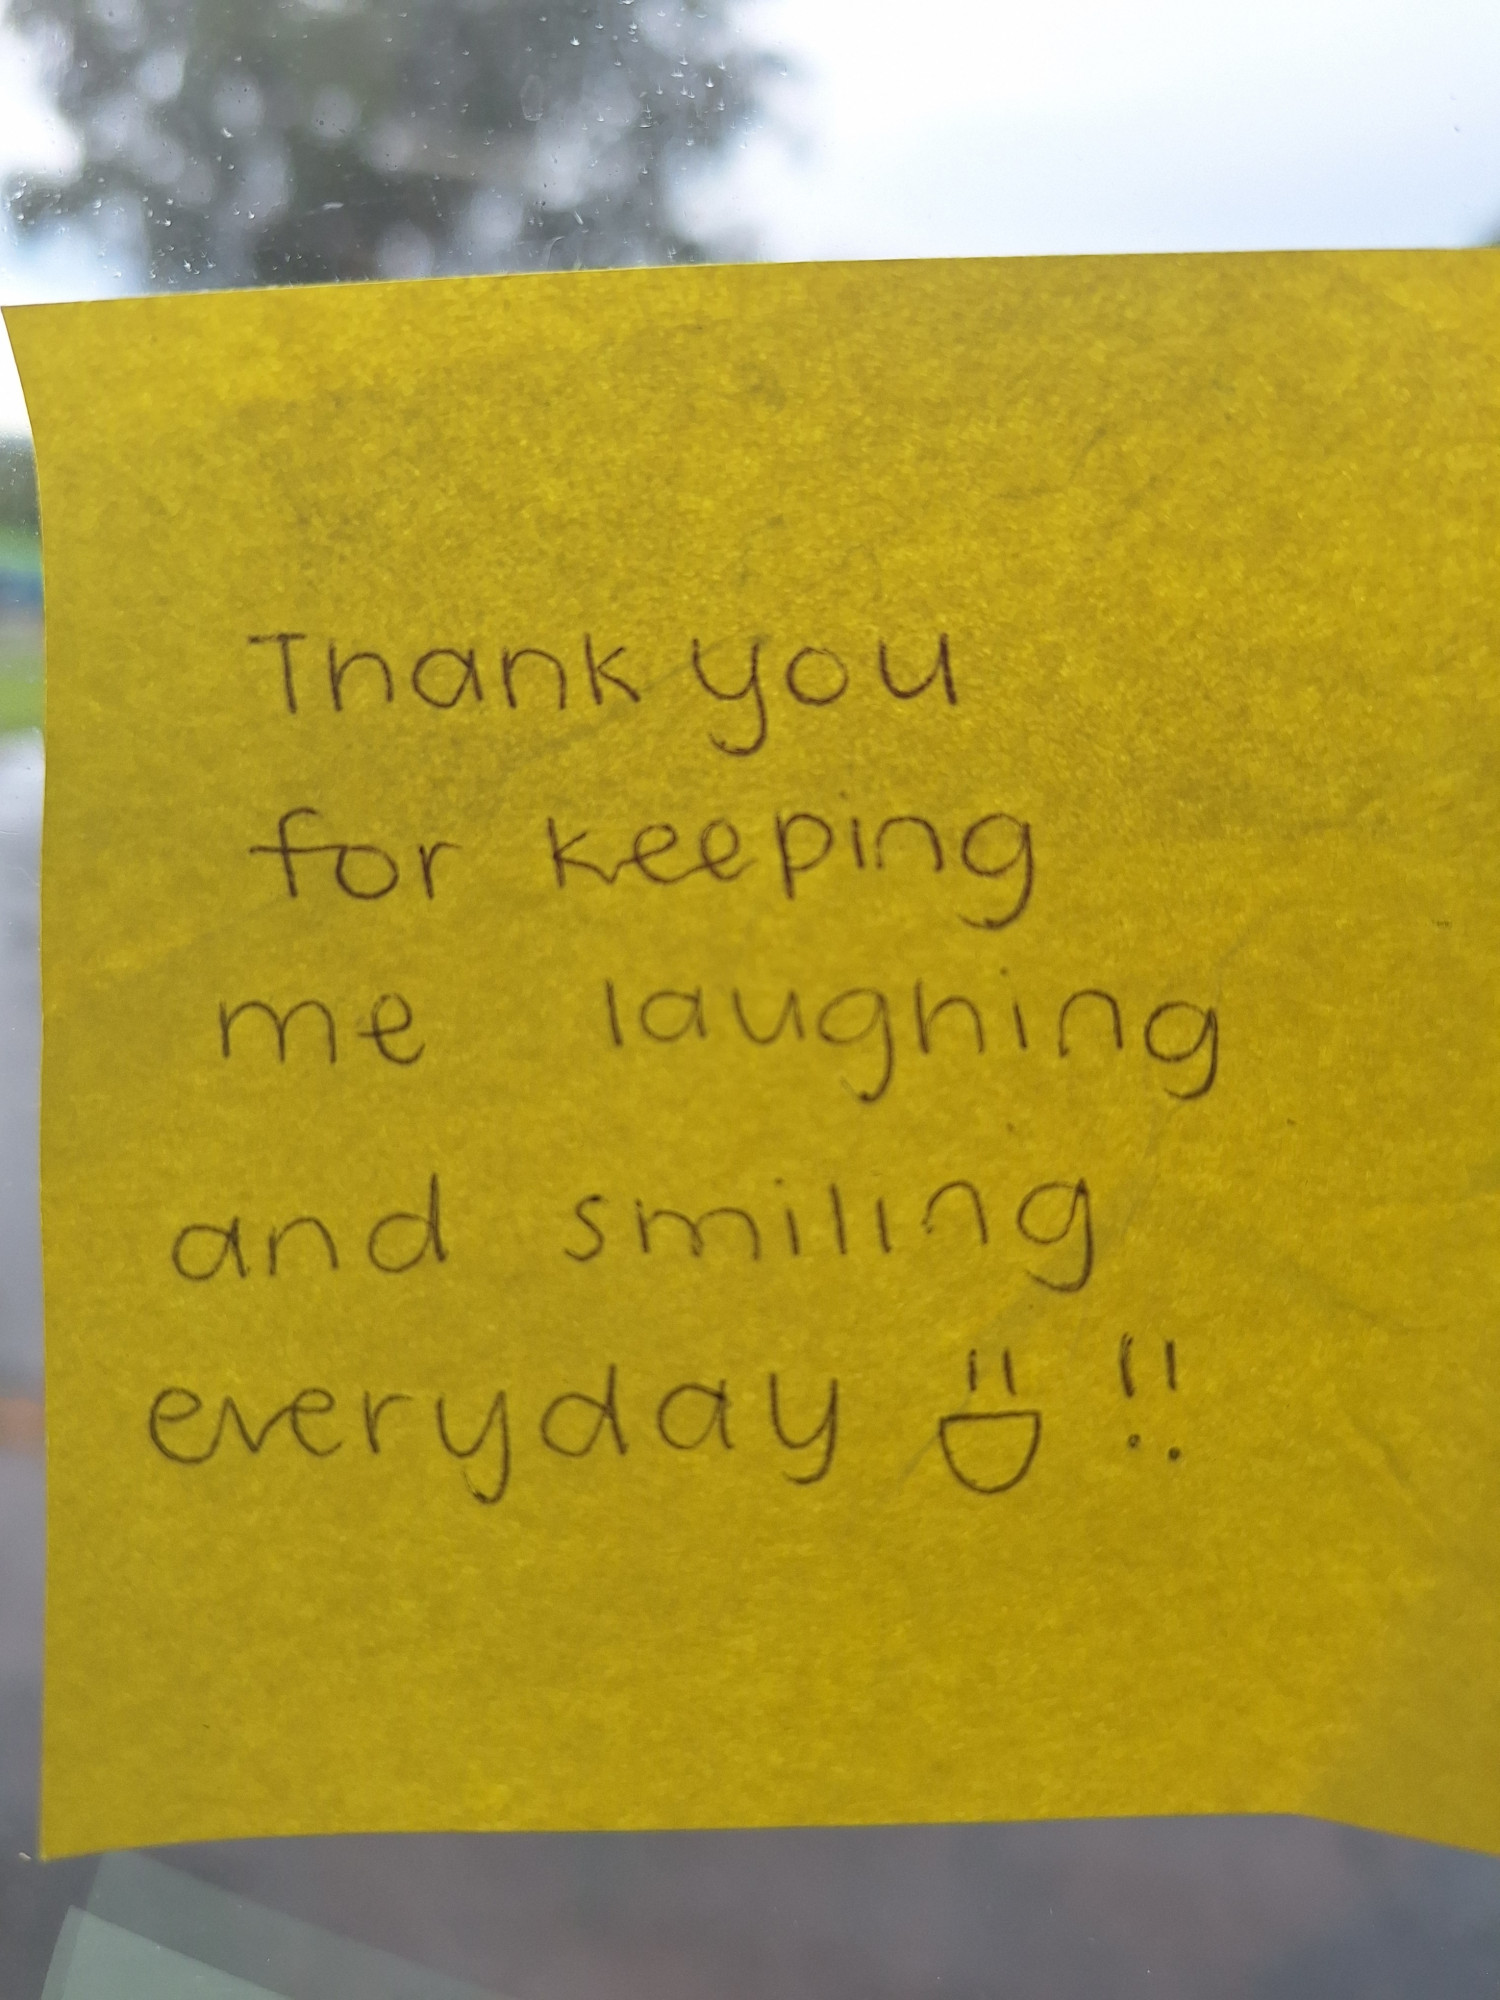 Thank you
for keeping
me laughing
and smiling
everyday !!